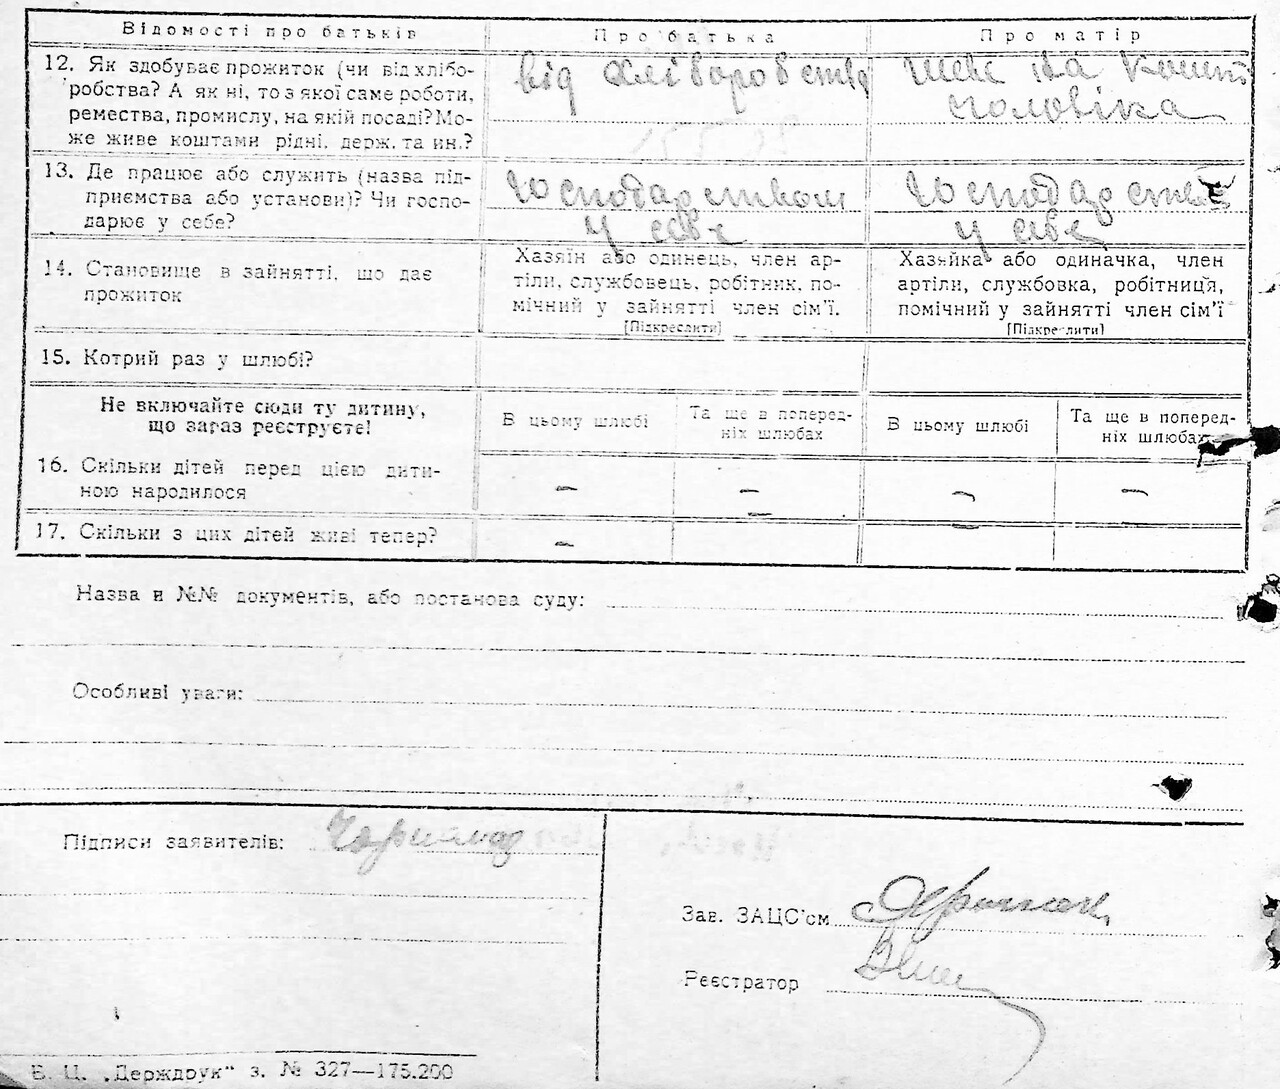 Відомості про батьків
Про батька
Про матір
12. Як здобуває прожиток (чи від хлібо-
робства? А як ні, то з якої саме роботи,
ремества, промислу, на якій посаді? Мо-
же живе коштами рідні, держ. та ин.?
від хліборобства
живе на кошти
чоловіка
13. Де працює або служить (назва під-
приємства або установи)? Чи госпо-
дарює у себе?
Господарством
у себе
Господарством
у себе
14. Становище в зайнятті, що дає
прожиток
Хазяїн або одинець, член ар-
тіли, службовець, робітник, по-
мічний у зайнятті член сім'ї.
[Підкреслити]
Хазяйка або одиначка, член
артіли, службовка, робітниця,
помічний у зайнятті член сім'ї
[Підкреслити]
15. Котрий раз у шлюбі?
Не включайте сюди ту дитину,
що зараз реєструєте!
В цьому шлюбі
Та ще в поперед-
ніх шлюбах
В цьому шлюбі
Та ще в поперед-
ніх шлюбах
16. Скільки дітей перед цією дити-
ною народилося
– – – –
17. Скільки з цих дітей живі тепер?
– – –
Назва и №№ документів, або постанова суду:
Особливі уваги:
Підписи заявителів:
Зав. ЗАЦС'ом
Реєстратор
В. Ц. „Держдрук" з. № 327—175.200